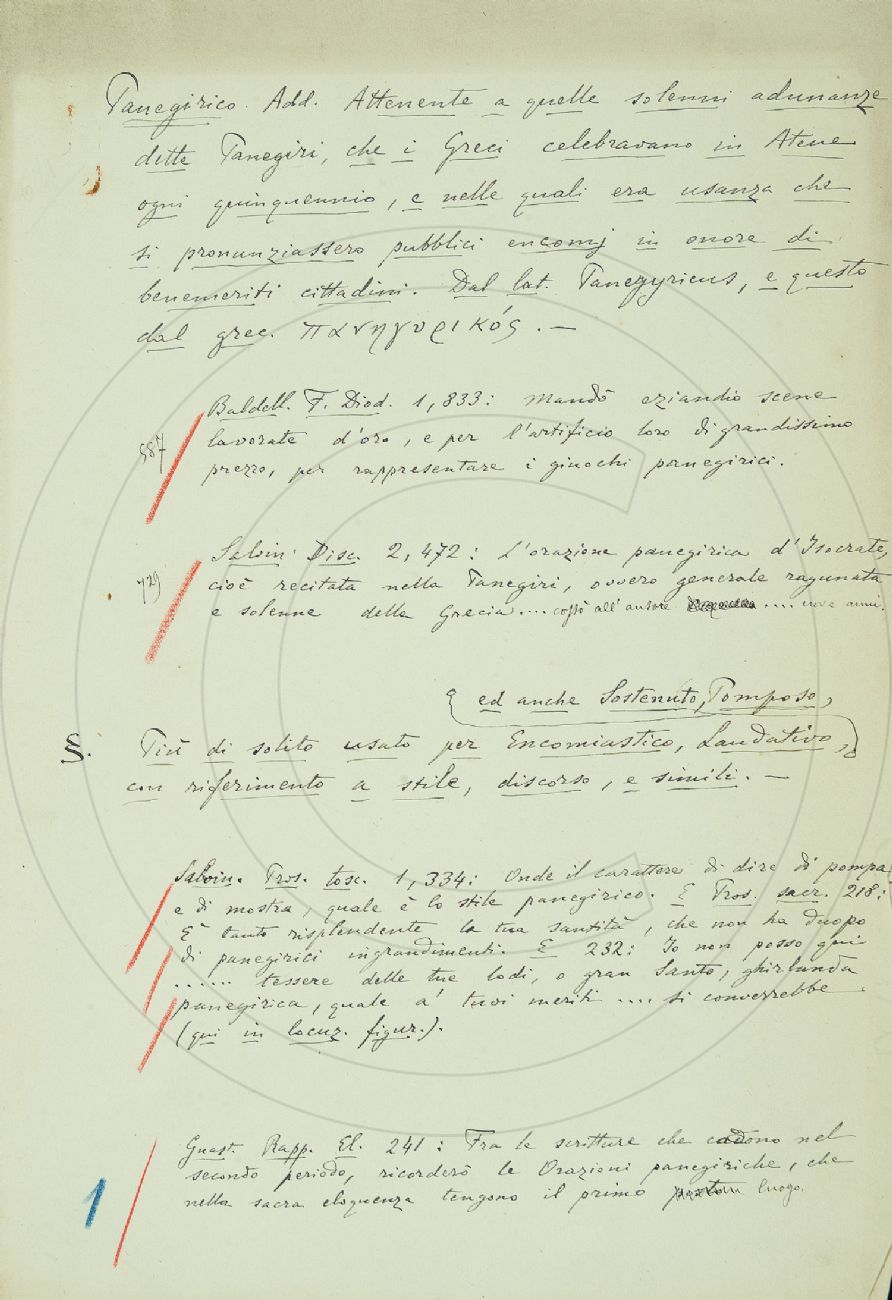 Panegirico. Add. Attenente a quelle solenni adunanze
dette Panegiri, che i Greci celebravano in Atene
ogni quinquennio, e nelle quali era usanza che
si pronunziassero pubblici encomj in onore di
benemeriti cittadini. Dal lat. Panegyricus, e questo
dal grec. πανηγυρικός. —
Baldell. F. Diod. 1, 833: Mandò eziandio scene
587 lavorate d'oro, e per l'artificio loro di grandissimo
prezzo, per rappresentare i giuochi panegirici.
Salvin. Disc. 2, 472: L'orazione panegirica d'Isocrate,
729 cioè recitata nella Panegiri, ovvero generale ragunata
e solenne della Grecia .... costò all'autore .... nove anni.
ed anche Sostenuto, Pomposo,
§. Più di solito usato per Encomiastico, Laudativo,
con riferimento a stile, discorso, e simili. —
Salvin. Pros. tosc. 1, 334: Onde il carattere di dire di pompa
e di mostra, quale è lo stile panegirico. E Pros. sacr. 218:
È tanto risplendente la tua santità, che non ha duopo
di panegirici ingrandimenti. E 232: Io non posso qui
...... tessere delle tue lodi, o gran Santo, ghirlanda
panegirica, quale a' tuoi meriti .... si converrebbe
(qui in locuz. figur.).
Guast. Rapp. El. 241: Fra le scritture che cadono nel
secondo periodo, ricorderò le Orazioni panegiriche, che
nella sacra eloquenza tengono il primo luogo.
1